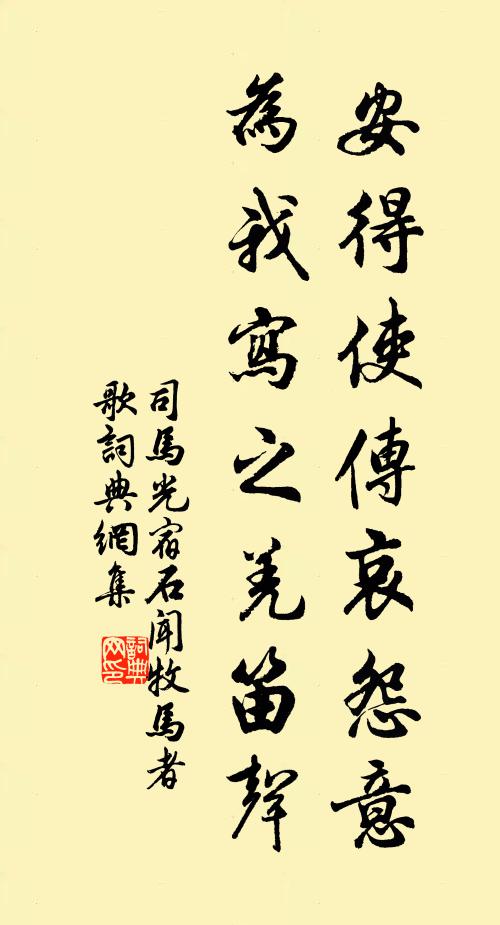 安得使傳哀怨意
為我寫之羌笛聲
司馬光宿石聞牧馬者
歌詞典網集
詞典網印